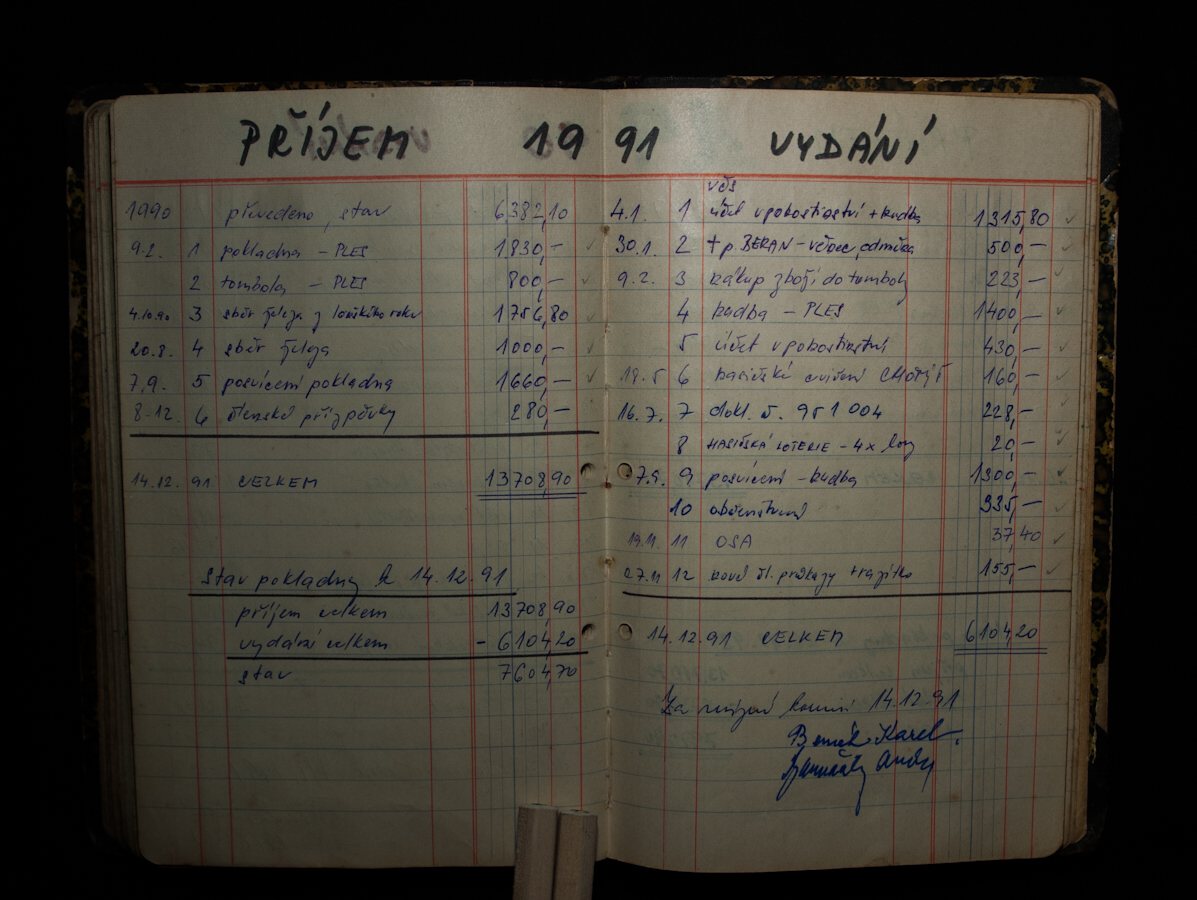 PŘÍJEM 19
1990 převedeno, stav 6382,10
9.2. 1 pokladna – PLES 1830,–
2 tombola – PLES 800,–
4.10.90 3 sběr železa z loňského roku 1756,80
20.8. 4 sběr železa 1000,–
7.9. 5 posvícení pokladna 1660,–
8-12. 6 členské příspěvky 280,–
14.12. 91 CELKEM 13708,90
Stav pokladny k 14.12.91
příjem celkem 13708,90
vydání celkem – 6104,20
stav 7604,70
91 VYDÁNÍ
VČS
4.1. 1 účet v pohostinství + hudba 1315,80
30.1. 2 + p. BERAN – věnec, odměna 500,–
9.2. 3 nákup zboží do tomboly 223,–
4 hudba – PLES 1400,–
5 účet v pohostinství 430,–
18.5 6 hasičské cvičení 160,–
16.7. 7 dokl. č. 951 004 228,–
8 HASIČSKÁ LOTERIE – 4x los 20,–
7.9. 9 posvícení – hudba 1300,–
10 občerstvení 335,–
19.11. 11 OSA 37,40
27.11 12 nové čl. průkazy + razítko 155,–
14.12.91 CELKEM 6104,20
Za revizní komisi 14.12.91
Karel